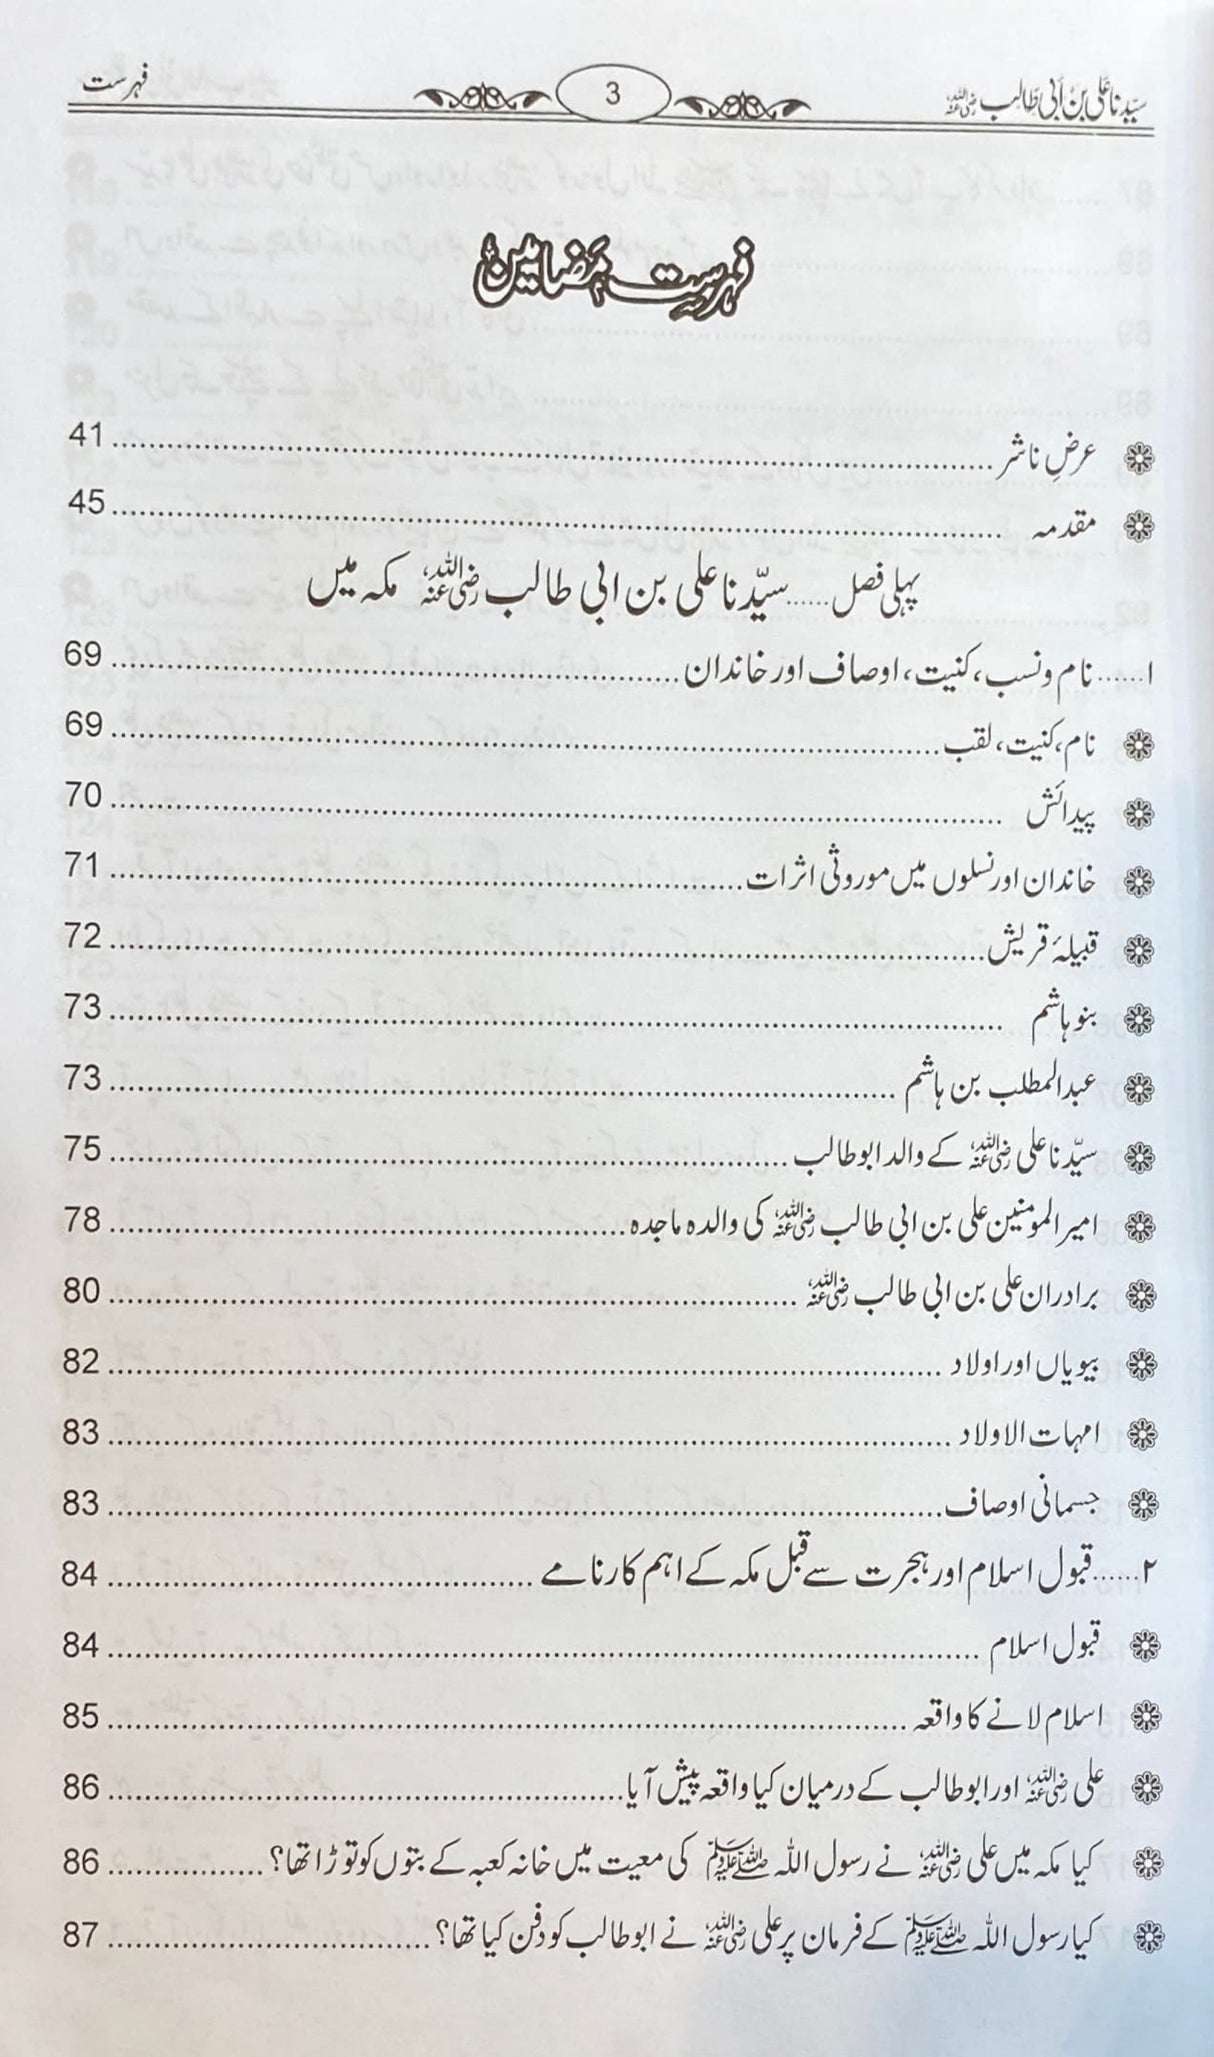 سیّدنا علی بن أبی طالب رضی اللہ عنہ 3 فہرست
فہرست مضامین
عرضِ ناشر ........ 41
مقدمہ ........ 45
پہلی فصل......سیّدنا علی بن ابی طالب رضی اللہ عنہ مکہ میں
۱......نام و نسب، کنیت، اوصاف اور خاندان ........ 69
نام، کنیت، لقب ........ 69
پیدائش ........ 70
خاندان اور نسلوں میں موروثی اثرات ........ 71
قبیلۂ قریش ........ 72
بنو ہاشم ........ 73
عبدالمطلب بن ہاشم ........ 73
سیّدنا علی رضی اللہ عنہ کے والد ابوطالب ........ 75
امیر المومنین علی بن ابی طالب رضی اللہ عنہ کی والدہ ماجدہ ........ 78
برادران علی بن ابی طالب رضی اللہ عنہ ........ 80
بیویاں اور اولاد ........ 82
امہات الاولاد ........ 83
جسمانی اوصاف ........ 83
۲......قبول اسلام اور ہجرت سے قبل مکہ کے اہم کارنامے ........ 84
قبول اسلام ........ 84
اسلام لانے کا واقعہ ........ 85
علی رضی اللہ عنہ اور ابوطالب کے درمیان کیا واقعہ پیش آیا ........ 86
کیا مکہ میں علی رضی اللہ عنہ نے رسول اللہ ﷺ کی معیت میں خانہ کعبہ کے بتوں کو توڑا تھا؟ ........ 86
کیا رسول اللہ ﷺ کے فرمان پر علی رضی اللہ عنہ نے ابوطالب کو دفن کیا تھا؟ ........ 87